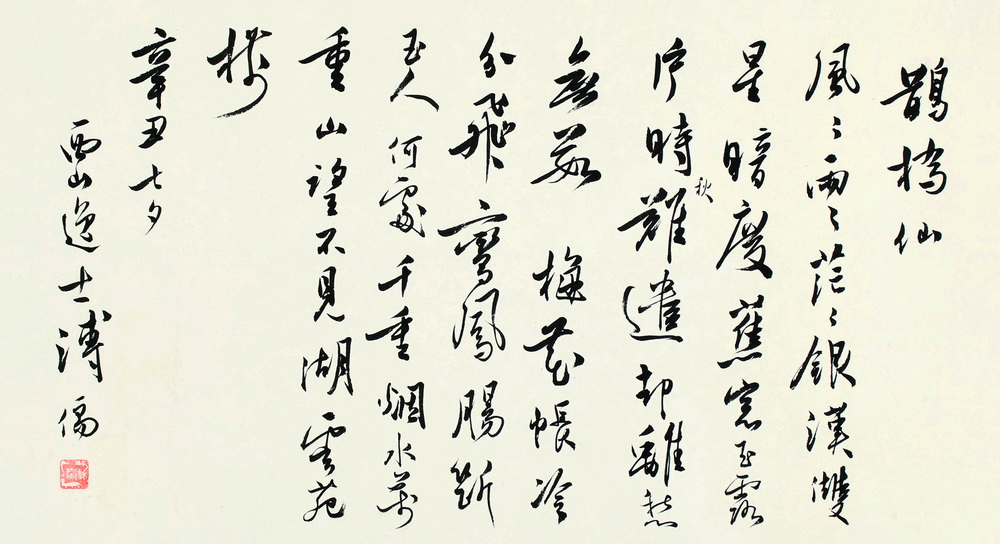 鵲橋仙
風〻雨〻茫〻銀漢雙
星暗度蕉窓玉露
户時秋難遣却離愁
無數梅花帳冷
分飛鸞鳳腸斷
玉人何處千重烟水萬
重山望不見湖雲苑
樹
辛丑七夕
西山逸士溥儒